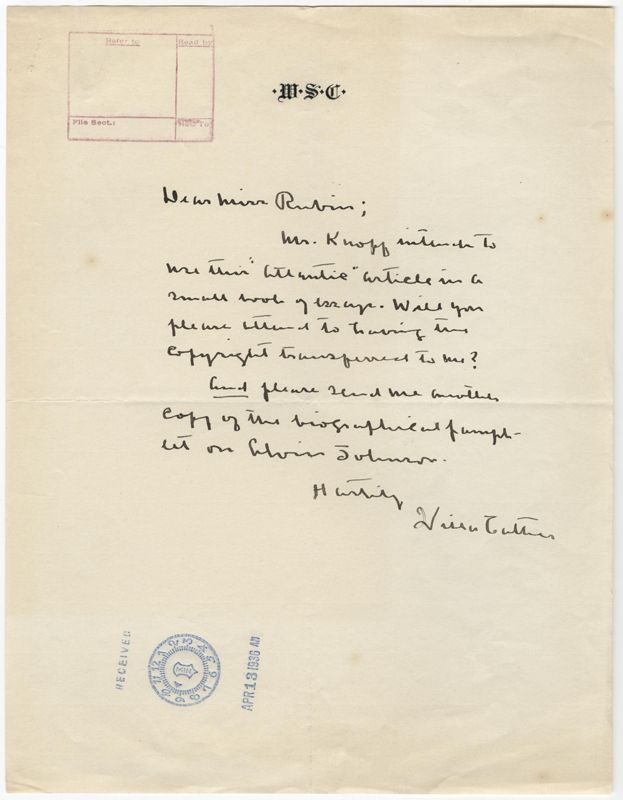 Refer to
Read by
File Sect.:
·W·S·C·
Dear Miss Rubin;
Mr. Knopf intends to
use this "Atlantic" article in a
small book of essays. Will you
please attend to having the
copyright transferred to me?
And please send me another
copy of the biographical pamph-
let on Alvin Johnson.
Hastily
Willa Cather
RECEIVED
MIN
APR 13 1936 AM